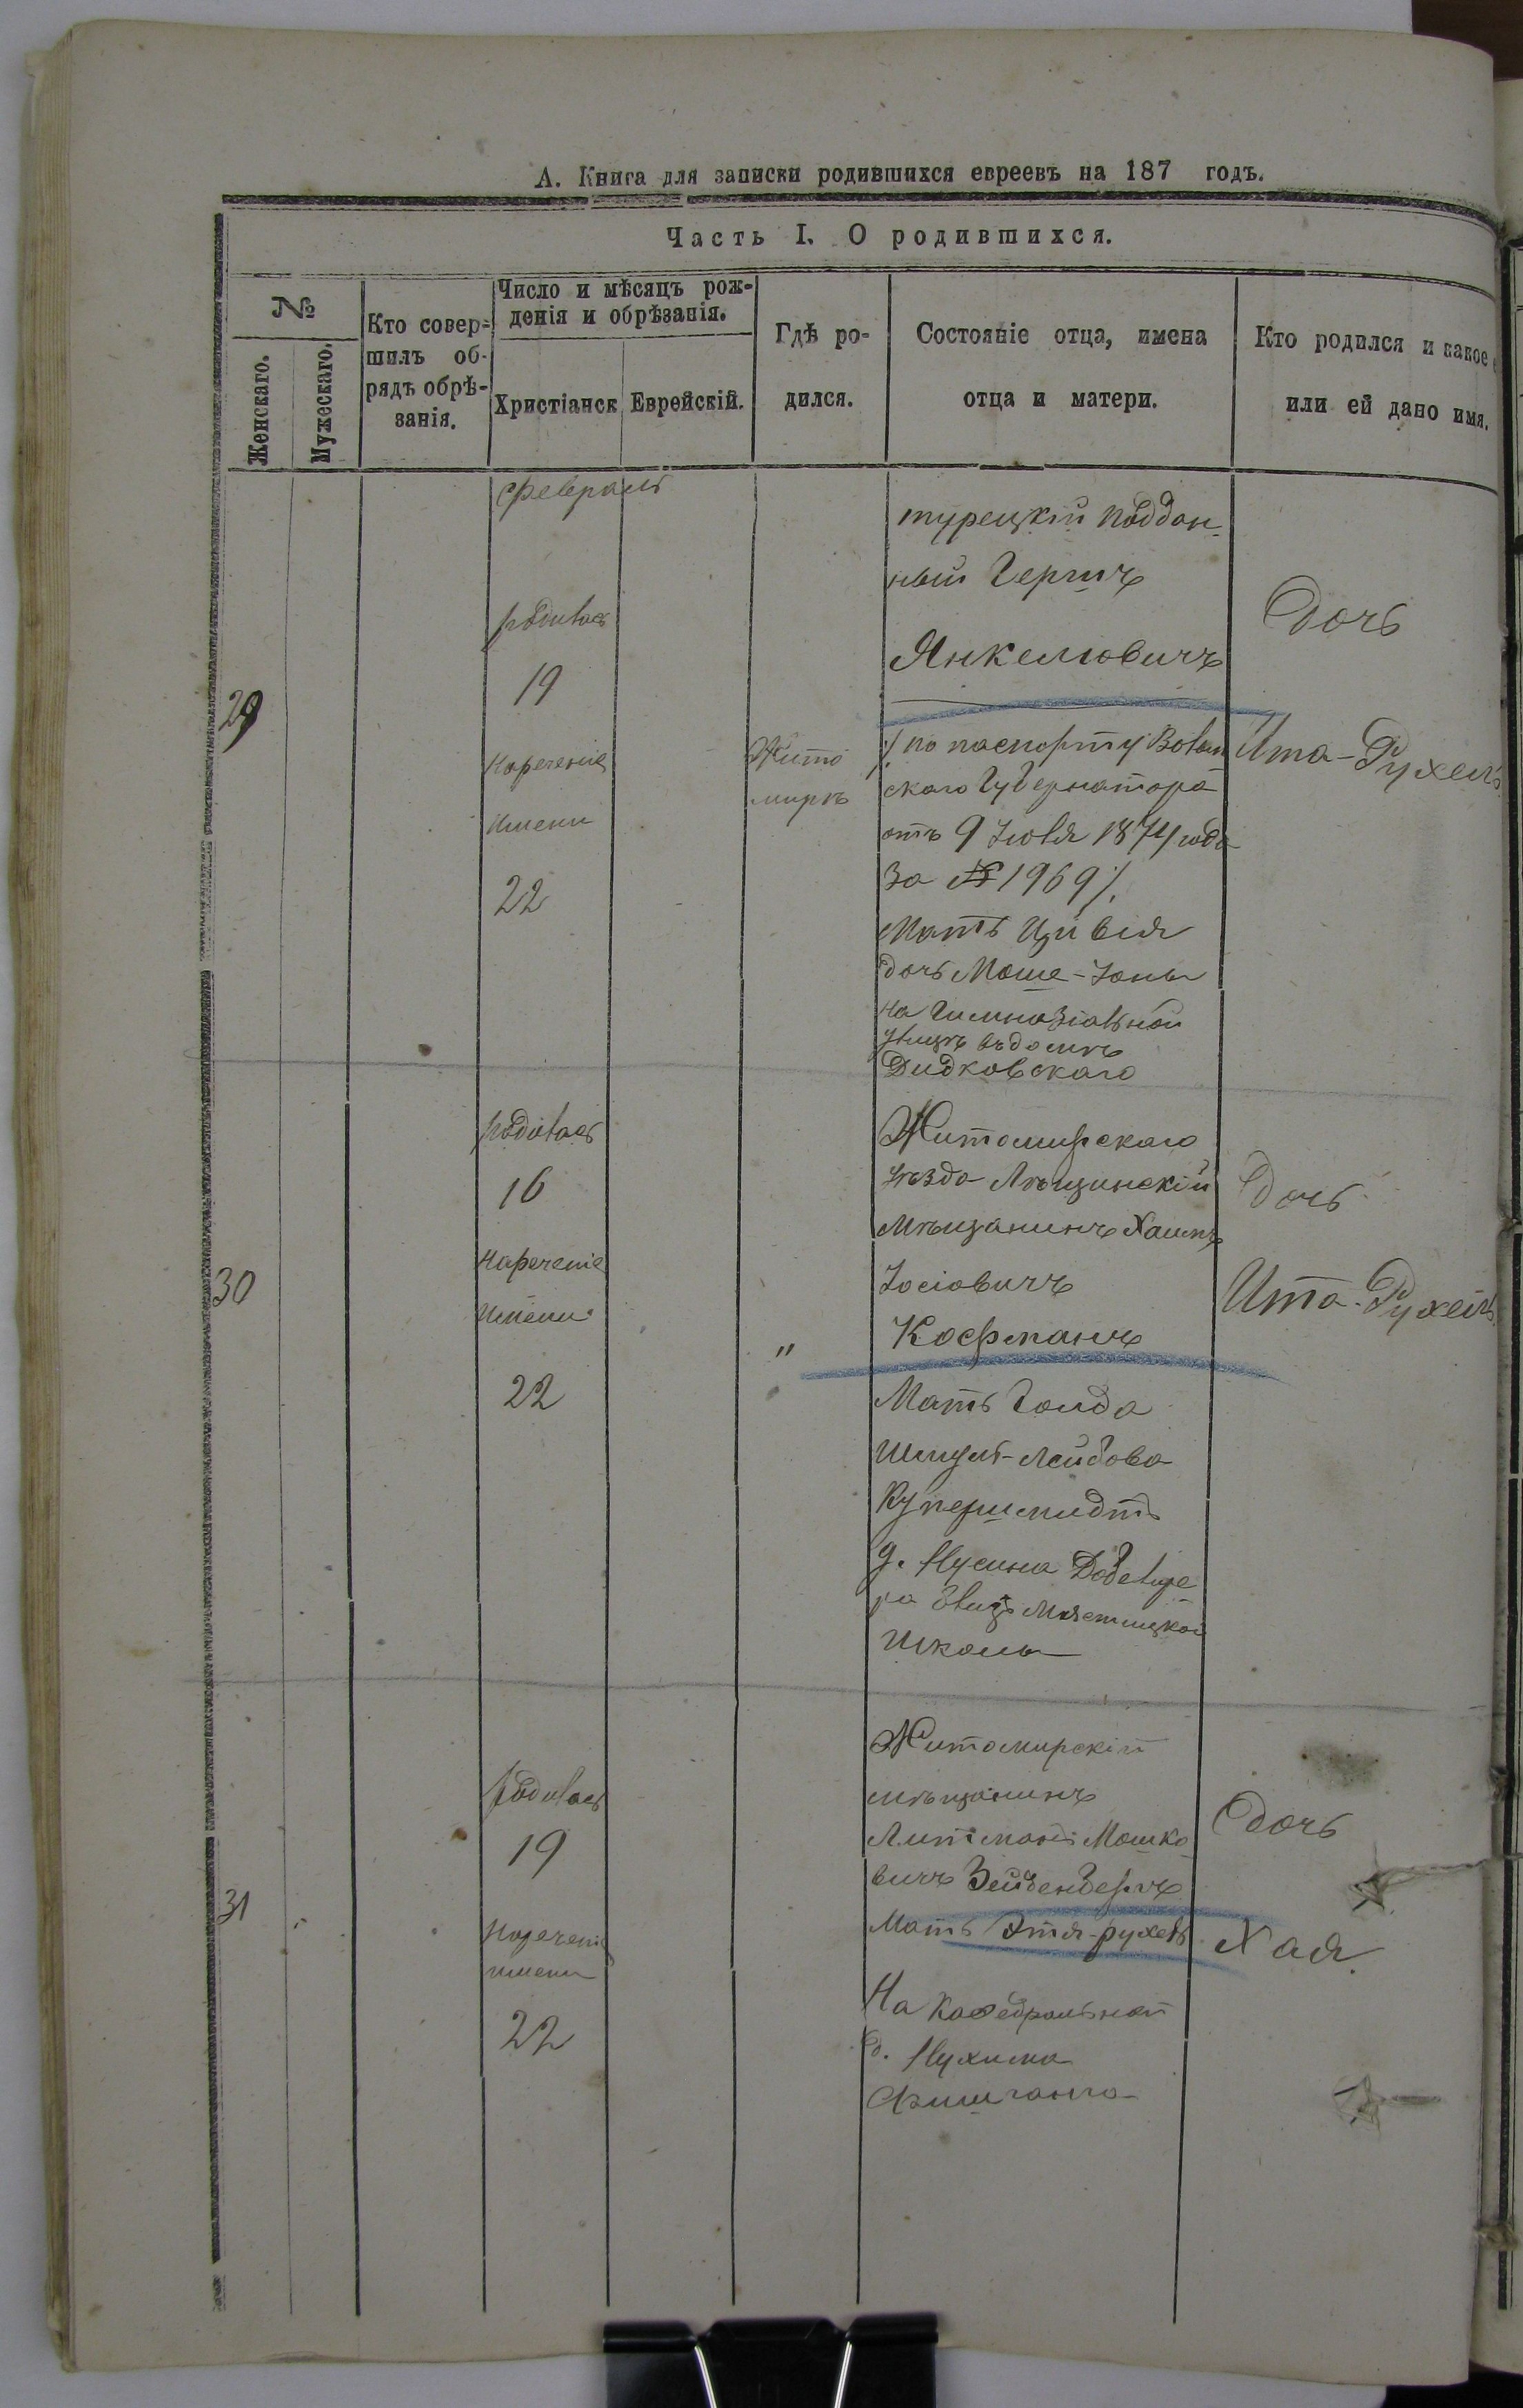 А. Книга для записки родившихся евреевъ на 187 годъ.
Часть I. О родившихся.
№
Женскаго.
Мужескаго.
Кто совер-
шилъ об-
рядъ обрѣ-
занія.
Число и мѣсяцъ рож-
денія и обрѣзанія.
Христіанск
Еврейскій.
Гдѣ ро-
дился.
Состояніе отца, имена
отца и матери.
Кто родился и какое
или ей дано имя.
Февраль
29
родилась
19
Наречение
Имени
22
Жито
миръ
турецкій поддан
ный Гершъ
Янкеліовичъ
/по паспорту Волын
скаго Губернатора
отъ 9 Іюля 1874 года
за № 1969/.
Мать Цивія
дочь Моше-Іоны
на Гимназіальной
улицѣ въ домѣ
Дидковскаго
Дочь
Ита-Рухель
30
родилась
16
Наречение
Имени
22
"
Житомирскаго
уѣзда Лѣщинскій
Мѣщанинъ Хаимъ
Іосіовичъ
Кофманъ
Мать Голда
Шмуль-Лейбова
Купершмидтъ
д. Нусина
Школы
Дочь
Ита-Рухель
31
родилась
19
Наречение
имени
22
Житомирскій
мѣщанинъ
Литманъ Мошко
вичъ Зейденбергъ
Мать Этя-рухель
На Кафедральной
д. Нухима
Фишганга
Дочь
Хая.